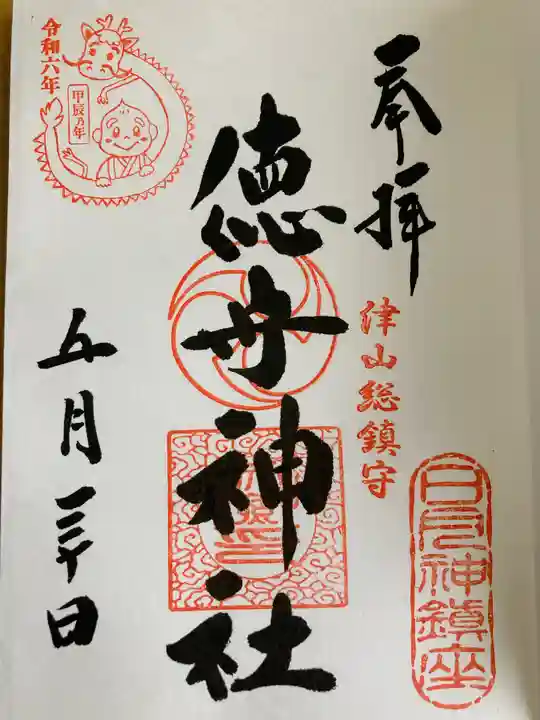 奉拝
津山総鎮守
日月神鎮座
徳守神社
令和六年
甲辰乃年
五月三十日